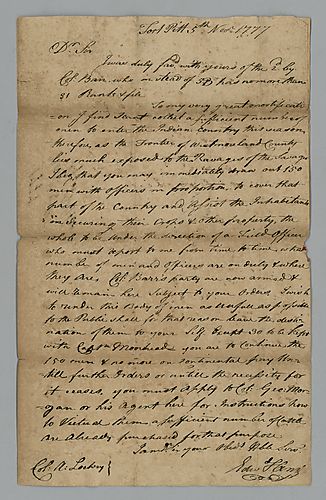 Fort Pitt 5th Novr. 1777
Dr. Sir
I was duly favd. with yours of the 2d. by
Col. Barr, who instead of 50, has no more than
31 Rank & file
To my very great mortification
I find I cannot collect a sufficient number of
men to enter the Indian Country this season,
therefore, as the Frontier of Westmoreland County
lies much exposed to the Ravages of the Savages
I beg that you may immediately draw out 150
men with officers in proportion, to cover that
part of the Country and assist the Inhabitants
in securing their Crops & other property, the
whole to be under the direction of a Field Officer
who must report to me from time to time, what
number of men and officers are on duty & where
they are, Col. Barr's party are now armed &
will remain here subject to your Orders, I wish
to render this Body of men as useful as possible
to the Public & for that reason leave the desti-
nation of them to your Self. Except 30 to be kept
with Captn. Moorhead you are to Continue the
150 men & no more on Continental pay &c.
till further Orders or untill the necessity for
it ceases, you must apply to Col. Geo: Mor-
gan or his Agent here for Instructions how
to Victual them, a sufficient number of Cattle
are Already purchased for that purpose
I am Dr. Sir your Obedt. Hble Servt.
Edwd. Hand
Col. A. Lochry